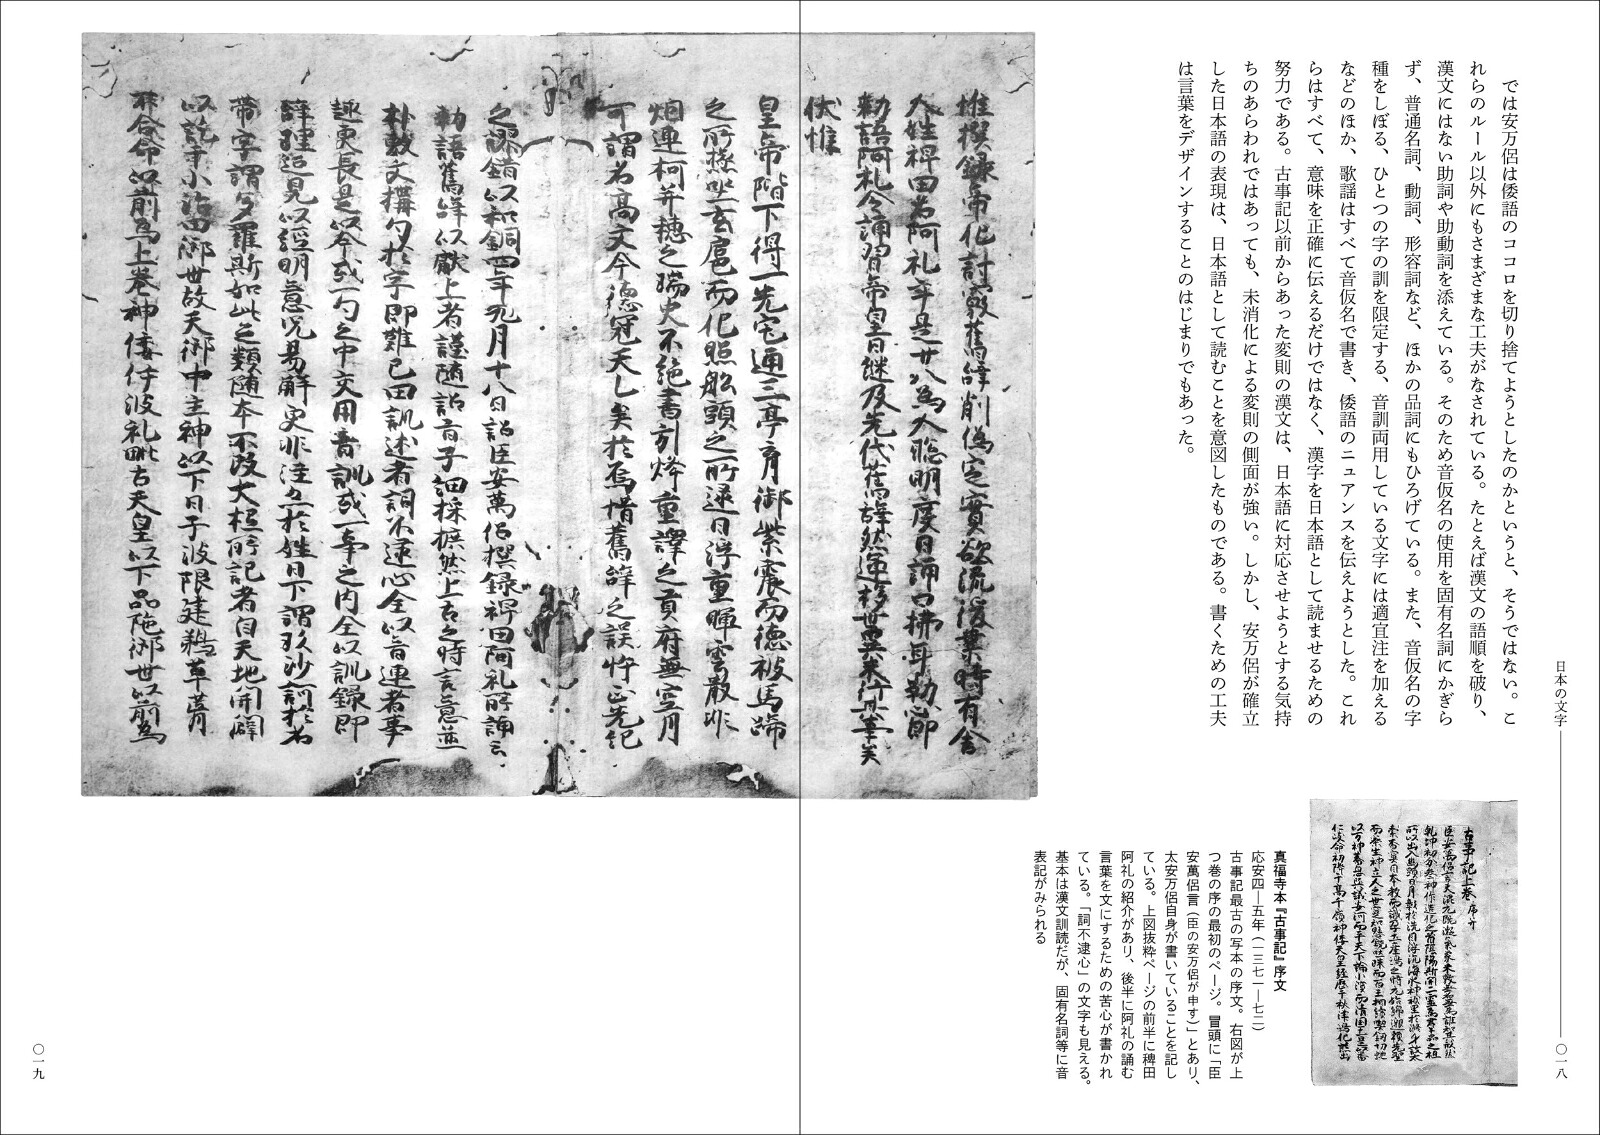 日本の文字
〇一八
では安万侶は倭語のココロを切り捨てようとしたのかというと、そうではない。こ
れらのルール以外にもさまざまな工夫がなされている。たとえば漢文の語順を破り、
漢文にはない助詞や助動詞を添えている。そのため音仮名の使用を固有名詞にかぎら
ず、普通名詞、動詞、形容詞など、ほかの品詞にもひろげている。また、音仮名の字
種をしぼる、ひとつの字の訓を限定する、音訓両用している文字には適宜注を加える
などのほか、歌謡はすべて音仮名で書き、倭語のニュアンスを伝えようとした。これ
らはすべて、意味を正確に伝えるだけではなく、漢字を日本語として読ませるための
努力である。古事記以前からあった変則の漢文は、日本語に対応させようとする気持
ちのあらわれではあっても、未消化による変則の側面が強い。しかし、安万侶が確立
した日本語の表現は、日本語として読むことを意図したものである。書くための工夫
は言葉をデザインすることのはじまりでもあった。
古事記上卷 序并
真福寺本『古事記』序文
応安四―五年(一三七一―七二)
古事記最古の写本の序文。右図が上
つ巻の序の最初のページ。冒頭に「臣
安萬侶言(臣の安万侶が申す)」とあり、
太安万侶自身が書いていることを記し
ている。上図抜粋ページの前半に稗田
阿礼の紹介があり、後半に阿礼の誦む
言葉を文にするための苦心が書かれ
ている。「詞不逮心」の文字も見える。
基本は漢文訓読だが、固有名詞等に音
表記がみられる
惟撰録帝化討覈舊辞削偽定實欲流後葉時有舍
人姓稗田名阿礼年是廿八為人聡明度目誦口拂耳勒心即
勅語阿礼令誦習帝皇日継及先代舊辞然運移世異未行其事矣
伏惟
皇帝陛下得一光宅通三亭育御紫宸而德被馬蹄
之所極坐玄扈而化照船頭之所逮日浮重暉雲散非
烟連柯并穗之瑞史不絶書列烽重譯之貢府無空月
可謂名高文命德冠天乙矣於焉惜舊辞之誤忤正先紀
之謬錯以和銅四年九月十八日詔臣安萬侶撰録稗田阿礼所誦之
勅語舊辞以獻上者謹随詔旨子細採摭然上古之時言意並
朴敷文構句於字即難已因訓述者詞不逮心全以音連者事
趣更長是以今或一句之中交用音訓或一事之内全以訓録即
辞理叵見以注明意況易解更非注亦於姓日下謂玖沙訶於名
帶字謂多羅斯如此之類随本不改大抵所記者自天地開闢
以訖于小治田御世故天御中主神以下日子波限建鵜草葺
不合命以前為上卷神倭伊波礼毗古天皇以下品陀御世以前為
〇一九